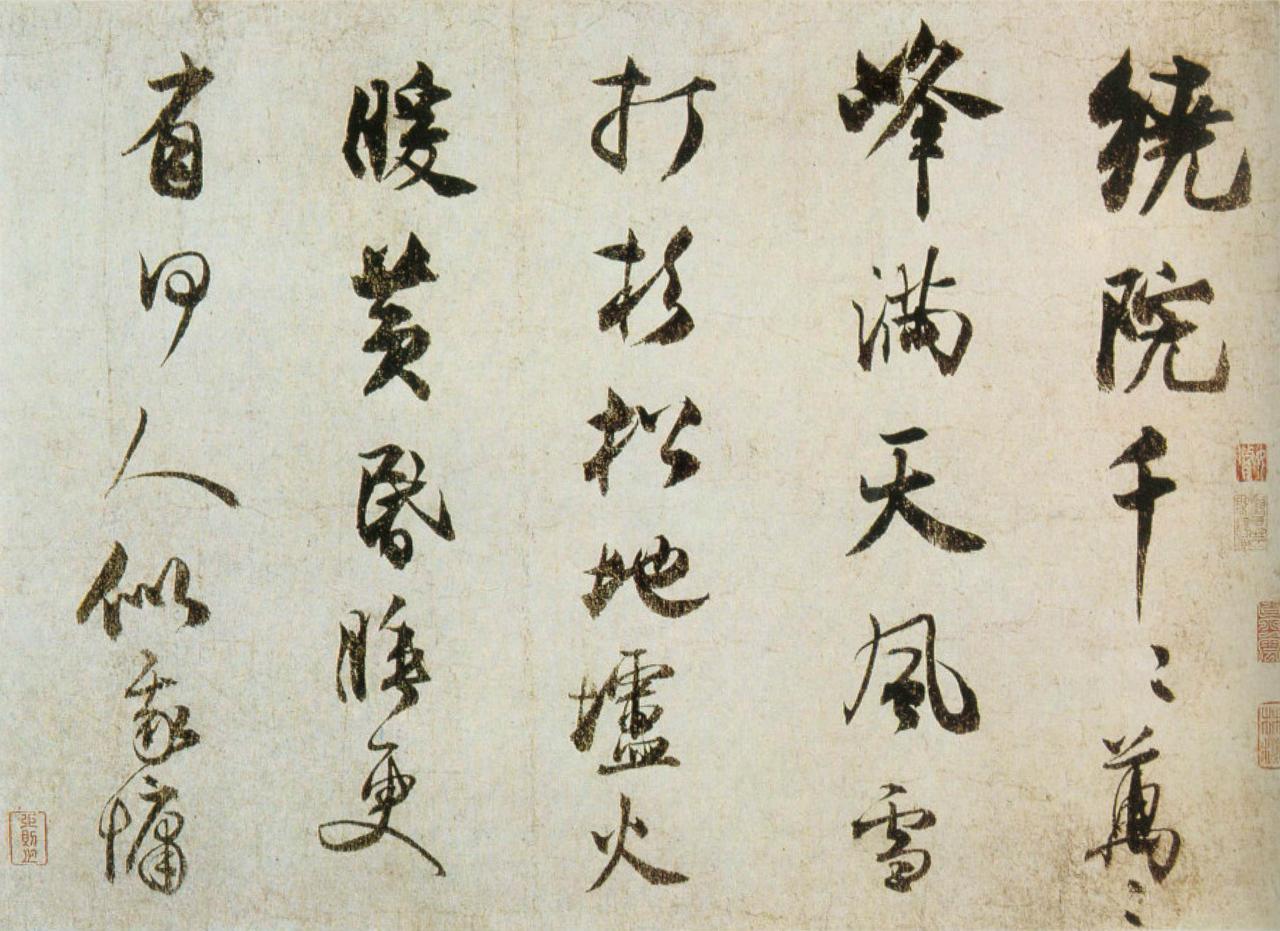 繞院千〻萬〻
峰滿天風雪
打杉松地壚火
暖黃昏睡更
有何人似我慵
張則之